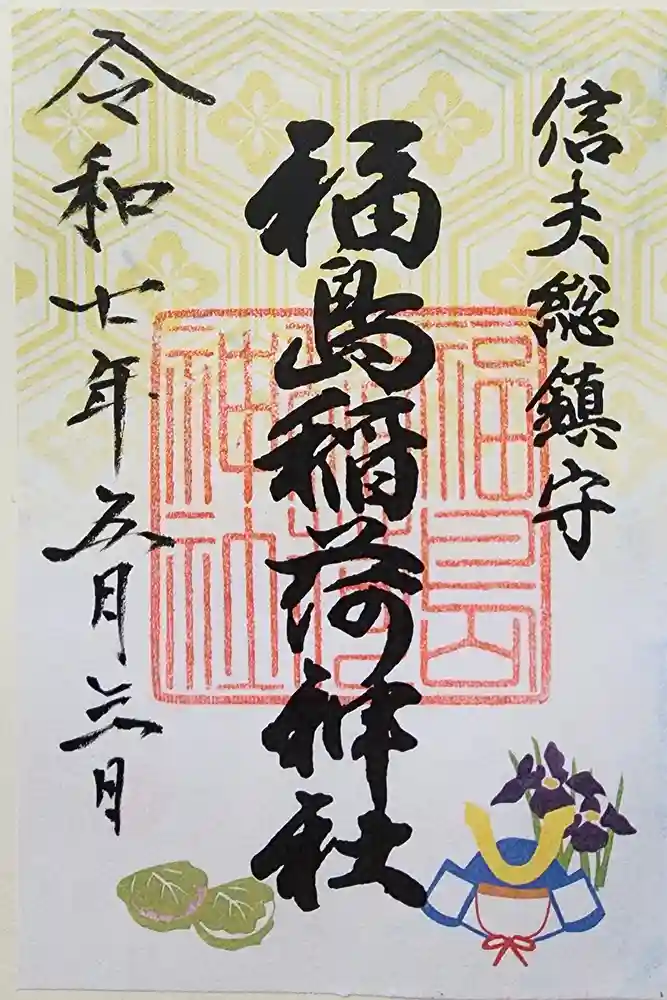 信夫総鎮守
福島稲荷神社
令和七年五月六日
福島
稲荷
神社